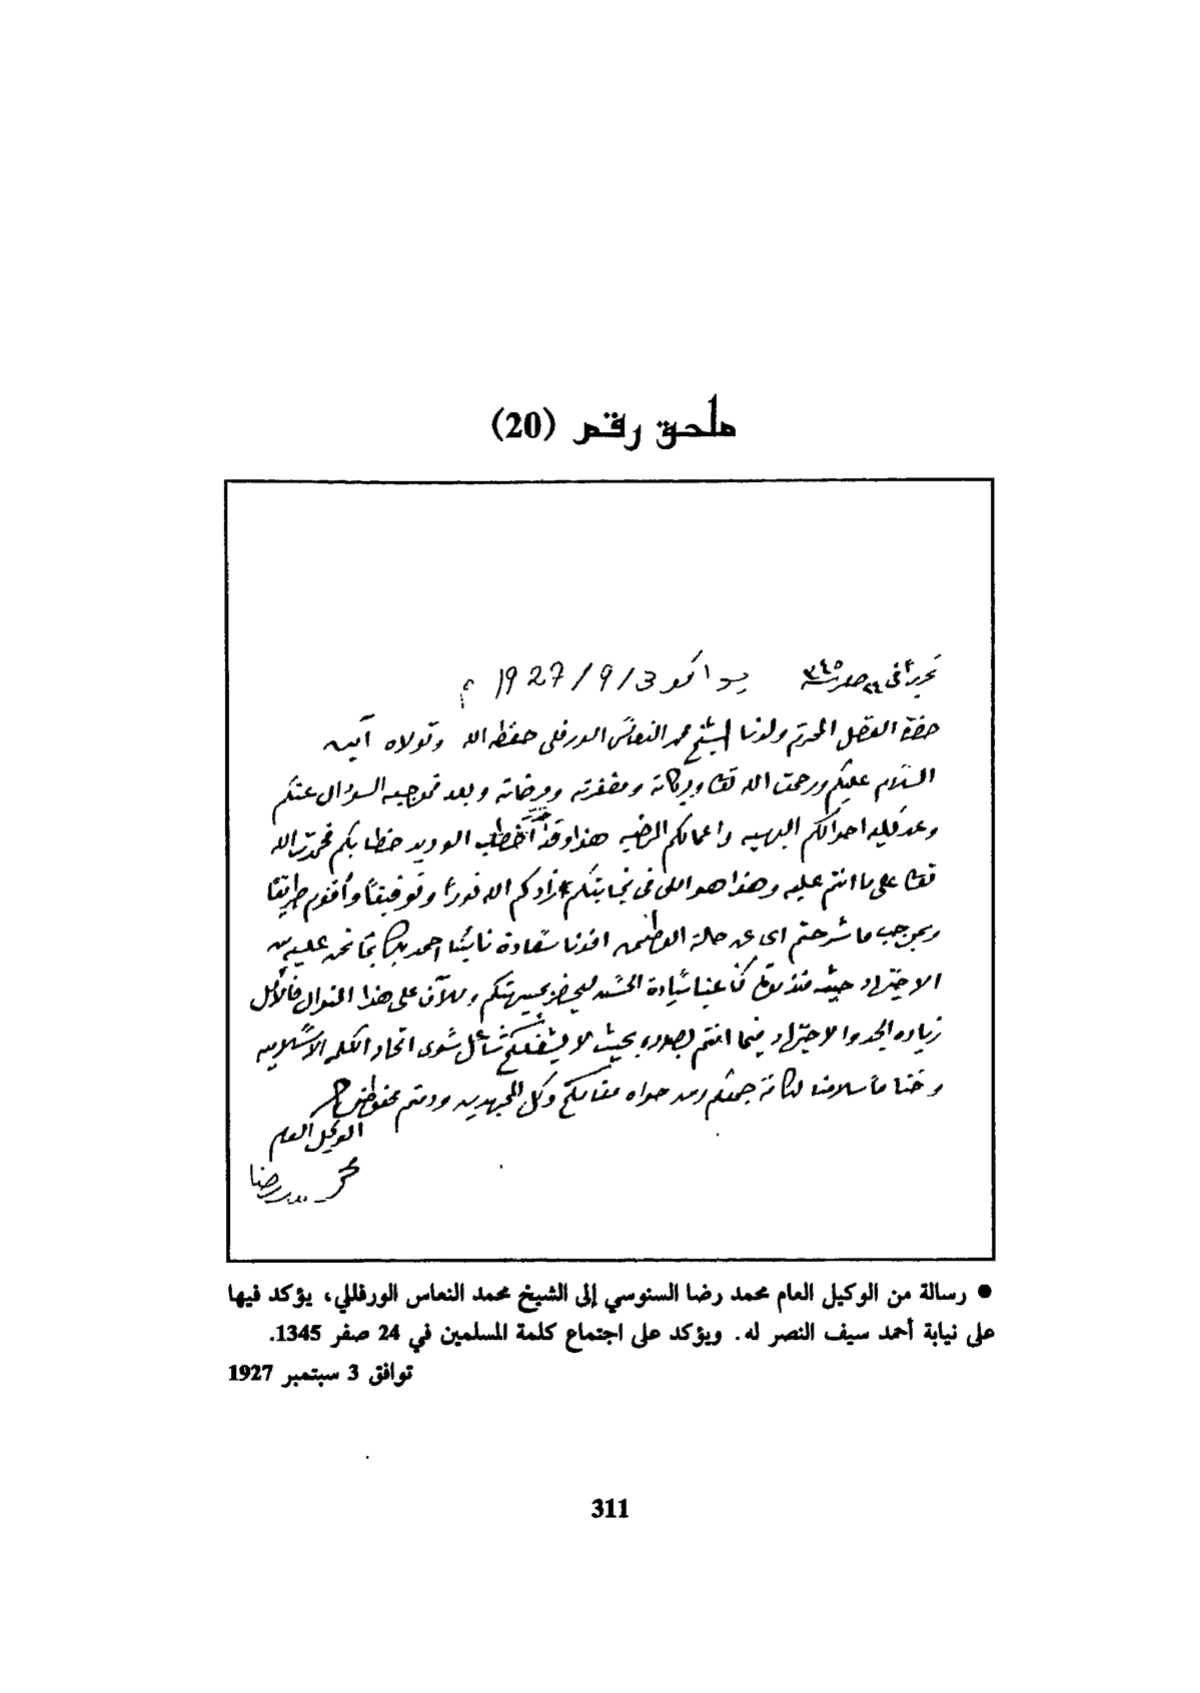 ملحق رقم (20)
تحريراً في ٢٤ صفر سنة ٣٤٥ 3/9/1927 م
حضرة الفضل المحترم ولدنا الشيخ محمد النعاس الورفلي حفظه الله وتولاه آمين
السلام عليكم ورحمت الله تعالى وبركاته ومغفرته ومرضاته وبعد فموجبه السؤال عنكم
وعن كلية احوالكم البهيه واعمالكم المرضيه هذا وقد أخذنا خطابكم فحمدت الله
تعالى على ما انتم عليه وهذا هو املي في نجابتكم زادكم الله نوراً وتوفيقاً وأقوم طريقاً
وبموجب ما شرحتم اي عن حالة الوطن افدنا سعادة نائبنا احمد بك بما نحن عليه من
الاجتهاد حيث منذ ... هذا المنوال فالأمل
زيادة الجد والاجتهاد فيما انتم بصدده بحيث لا يشغلكم شاغل سوى اتحاد الكلمه الاسلاميه
وختاماً سلامنا لكافة جمعكم ومن حواه مقامكم وكل المجاهدين ودمتم محفوظين
الوكيل العام
محمد رضا
● رسالة من الوكيل العام محمد رضا السنوسي إلى الشيخ محمد النعاس الورفللي، يؤكد فيها
على نيابة أحمد سيف النصر له. ويؤكد على اجتماع كلمة المسلمين في 24 صفر 1345.
توافق 3 سبتمبر 1927
311